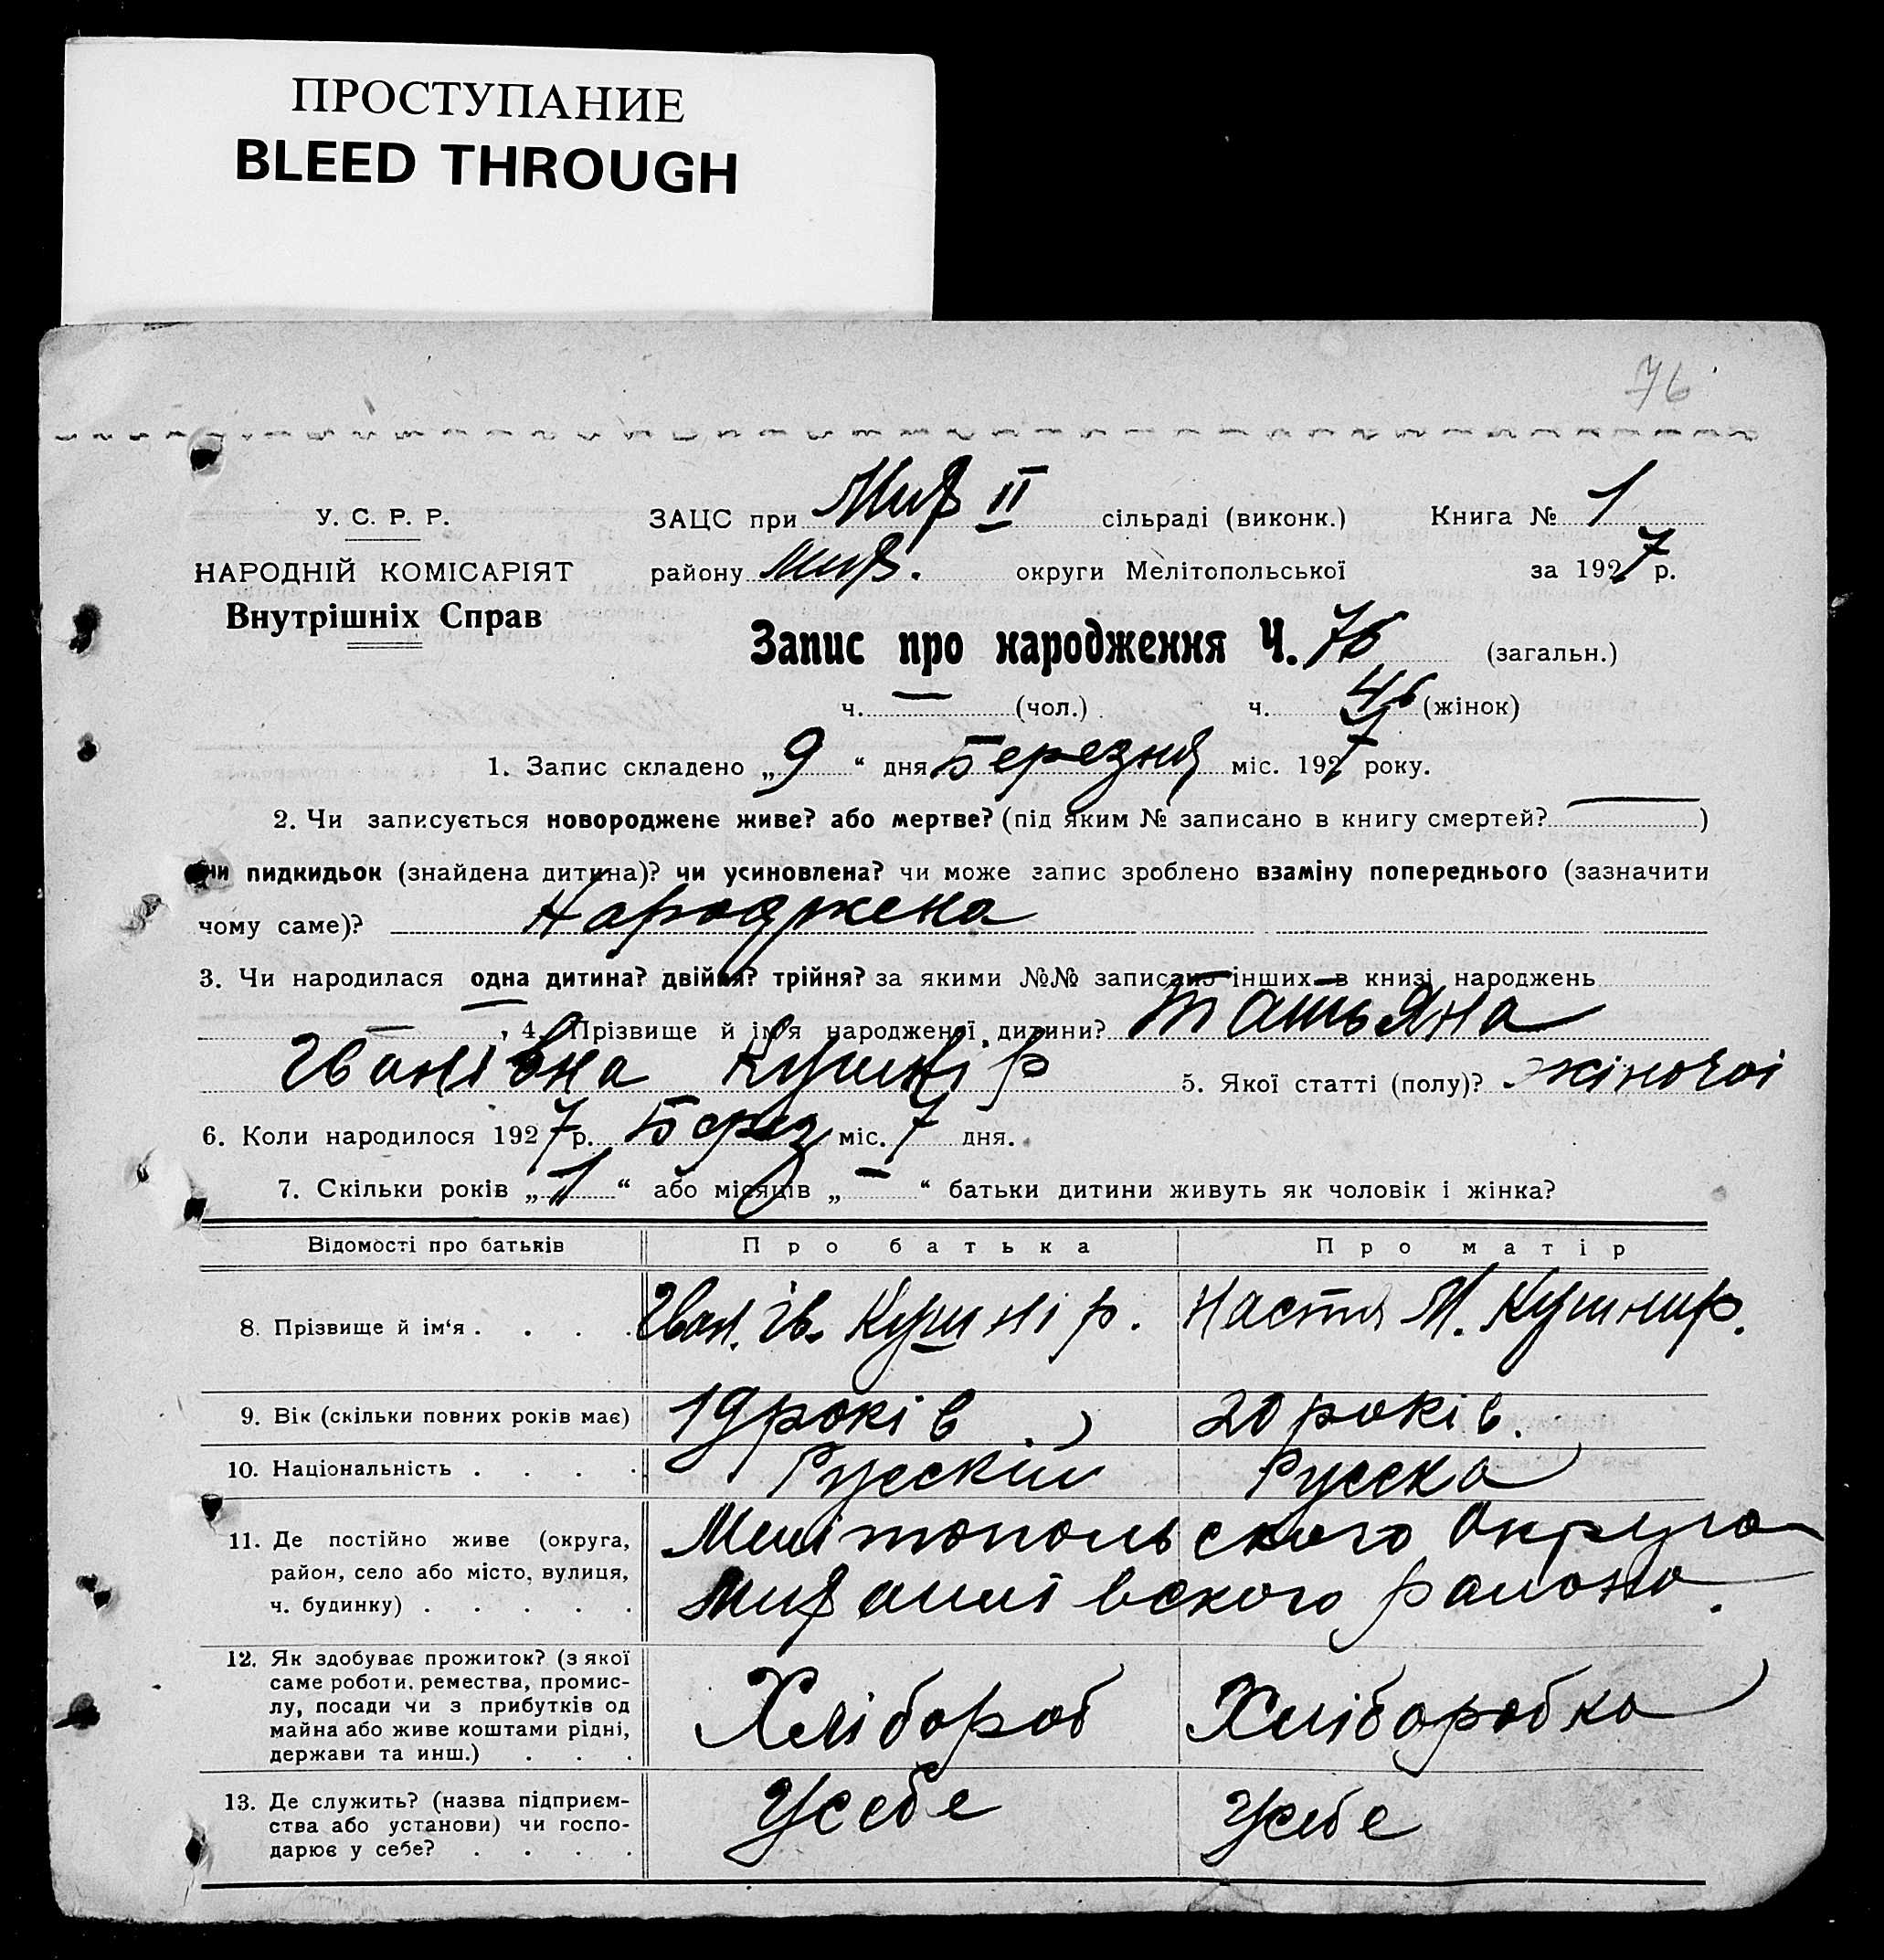 ПРОСТУПАНИЕ
BLEED THROUGH
76
У. С. Р. Р.
НАРОДНІЙ КОМІСАРІЯТ
Внутрішніх Справ
ЗАЦС при Мир II сільраді (виконк.) Книга № 1
району Мир. округи Мелітопольської за 1927 р.
Запис про народження Ч. 76 (загальн.)
ч. — (чол.) ч. (жінок)
1. Запис складено „9“ дня Березня міс. 1927 року.
2. Чи записується новороджене живе? або мертве? (під яким № записано в книгу смертей? —)
чи пидкидьок (знайдена дитина)? чи усиновлена? чи може запис зроблено взаміну попереднього (зазначити
чому саме)? Народжена
3. Чи народилася одна дитина? двійня? трійня? за якими №№ записано інших в книзі народжень
—, 4. Прізвище й ім'я народженої дитини? Татьяна
Іванівна Кушнір 5. Якої статті (полу)? жіночоі
6. Коли народилося 1927 р. Берез міс. 7 дня.
7. Скільки років „1“ або місяців „—“ батьки дитини живуть як чоловік і жінка?
Відомості про батьків Про батька Про матір
8. Прізвище й ім'я . . . . Іван. Ів. Кушнір. Настя М. Кушнир.
9. Вік (скільки повних років має) 19 років 20 років.
10. Національність . . . . Русский Русска
11. Де постійно живе (округа,
район, село або місто, вулиця,
ч. будинку) . . . . .
Мелітопольского Округа
Мираниівського района.
12. Як здобуває прожиток? (з якої
саме роботи, ремества, промис-
лу, посади чи з прибутків од
майна або живе коштами рідні,
держави та инш.) . . .
Хлібороб Хлібаробка
13. Де служить? (назва підприєм-
ства або установи) чи госпо-
дарює у себе? . . . .
Усебе Усебе